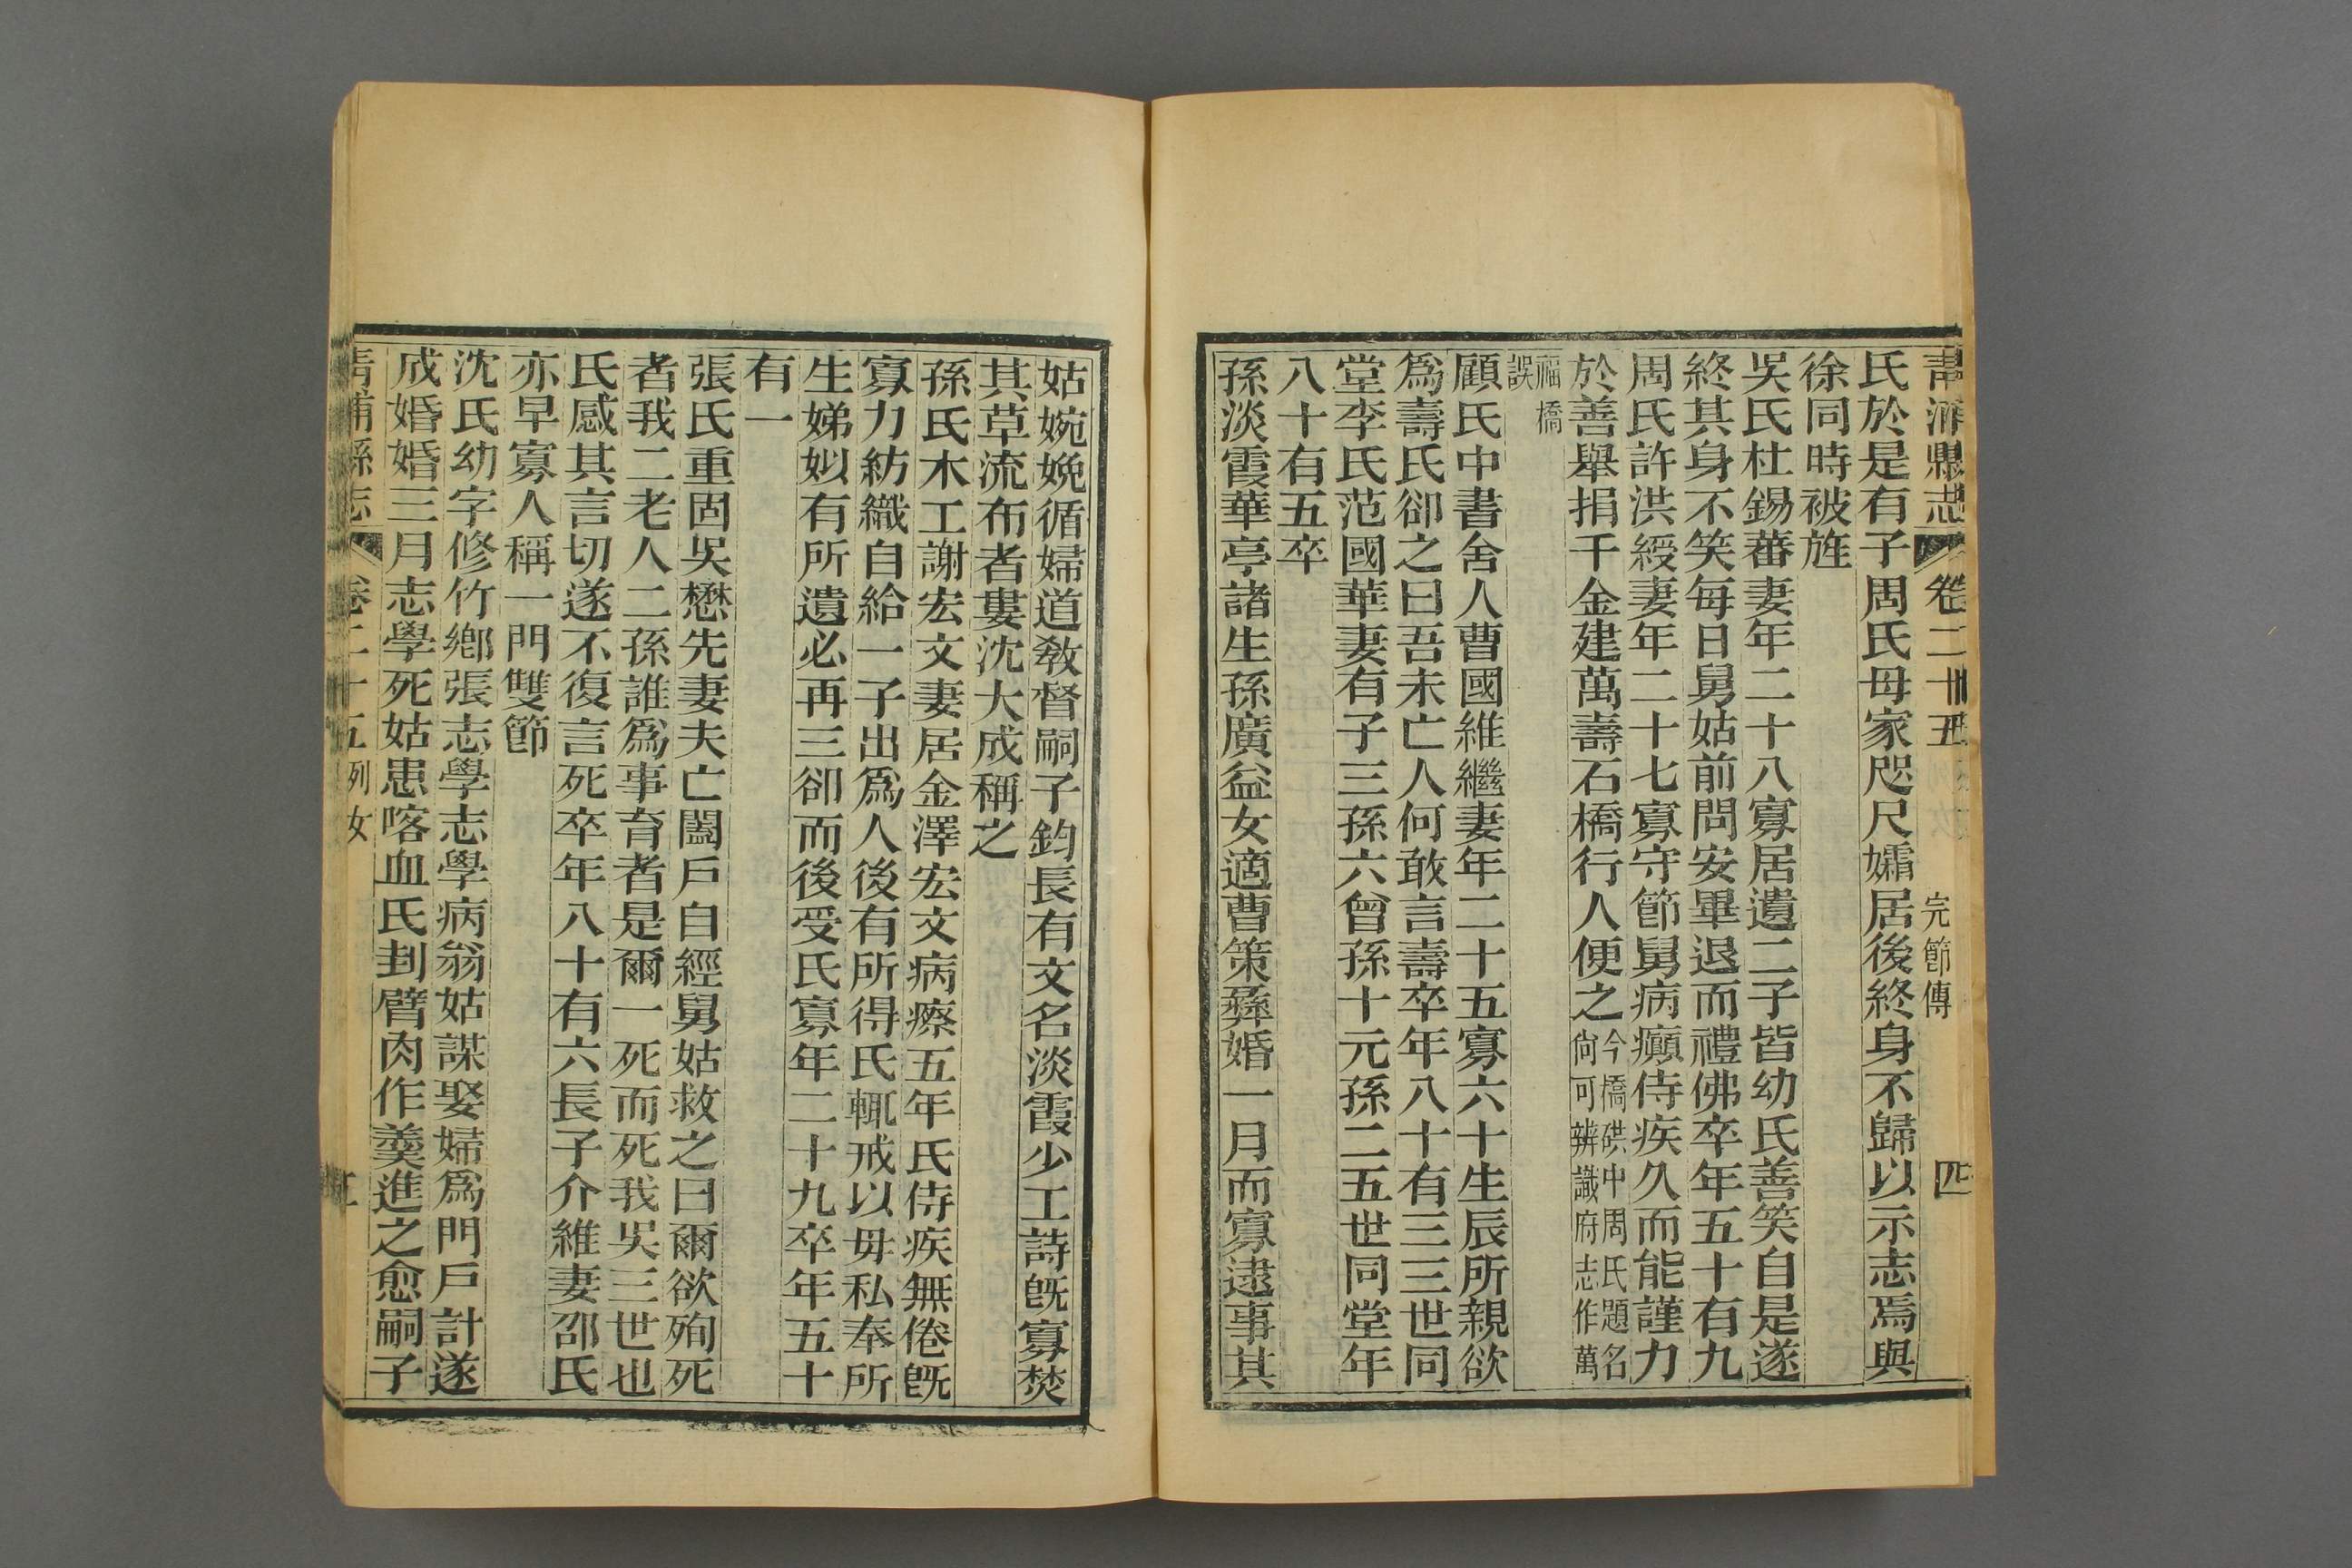 青浦縣志 卷二十五 完節傳 四
氏於是有子周氏母家咫尺孀居後終身不歸以示志焉與
徐同時被旌
吳氏杜錫蕃妻年二十八寡居遺二子皆幼氏善笑自是遂
終其身不笑每日舅姑前問安畢退而禮佛卒年五十有九
周氏許洪綬妻年二十七寡守節舅病癲侍疾久而能謹力
於善舉捐千金建萬壽石橋行人便之今橋硔中周氏題名尙可辨識府志作萬
福橋誤
顧氏中書舍人曹國維繼妻年二十五寡六十生辰所親欲
爲壽氏卻之曰吾未亡人何敢言壽卒年八十有三三世同
堂李氏范國華妻有子三孫六曾孫十元孫二五世同堂年
八十有五卒
孫淡霞華亭諸生孫廣益女適曹策彝婚一月而寡逮事其
姑婉娩循婦道教督嗣子鈞長有文名淡霞少工詩旣寡焚
其草流布者婁沈大成稱之
孫氏木工謝宏文妻居金澤宏文病瘵五年氏侍疾無倦旣
寡力紡織自給一子出爲人後有所得氏輒戒以毋私奉所
生娣姒有所遺必再三卻而後受氏寡年二十九卒年五十
有一
張氏重固吳懋先妻夫亡闔戶自經舅姑救之曰爾欲殉死
者我二老人二孫誰爲事育者是爾一死而死我吳三世也
氏感其言切遂不復言死卒年八十有六長子介維妻邵氏
亦早寡人稱一門雙節
沈氏幼字修竹鄉張志學志學病翁姑謀娶婦爲門戶計遂
成婚婚三月志學死姑患喀血氏刲臂肉作羹進之愈嗣子
青浦縣志 卷二十五 列女 五